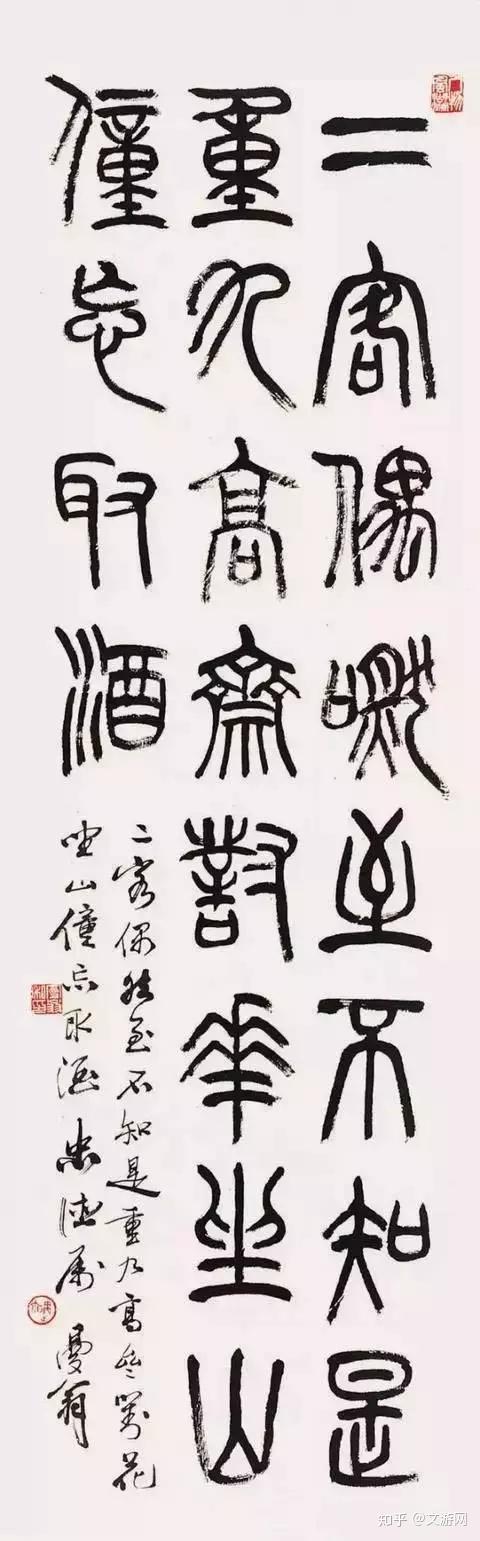 二客偶然至不知是
重九高齋對華坐山
僮忘取酒
二客偶然至不知是重九高斋對花
坐山僮忘取酒 忠德属 曼翁
知乎 @文游网